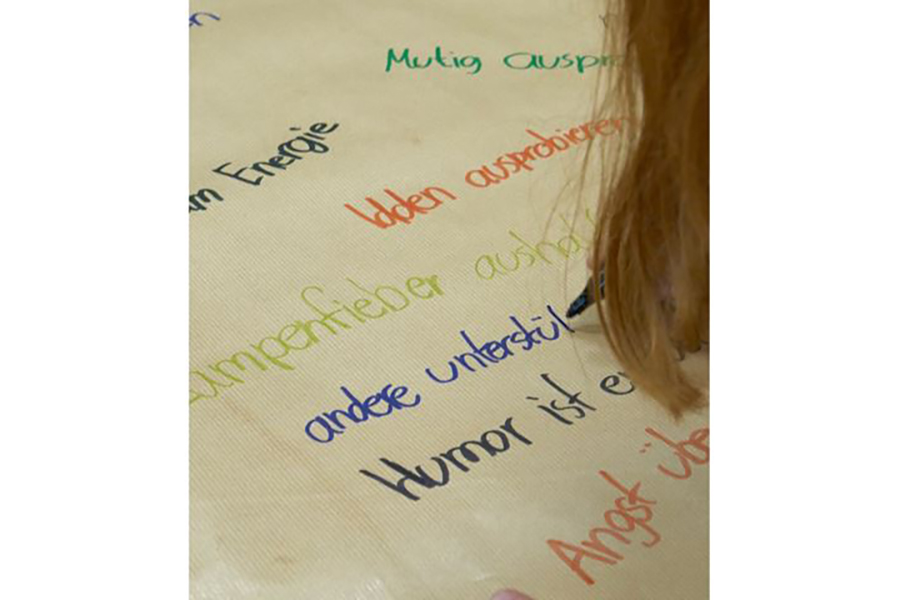 Mutig auspr
Energie
Idden ausprobieren
ampenfieber aushal
andere unterstüt
Humor ist e
Angst übe